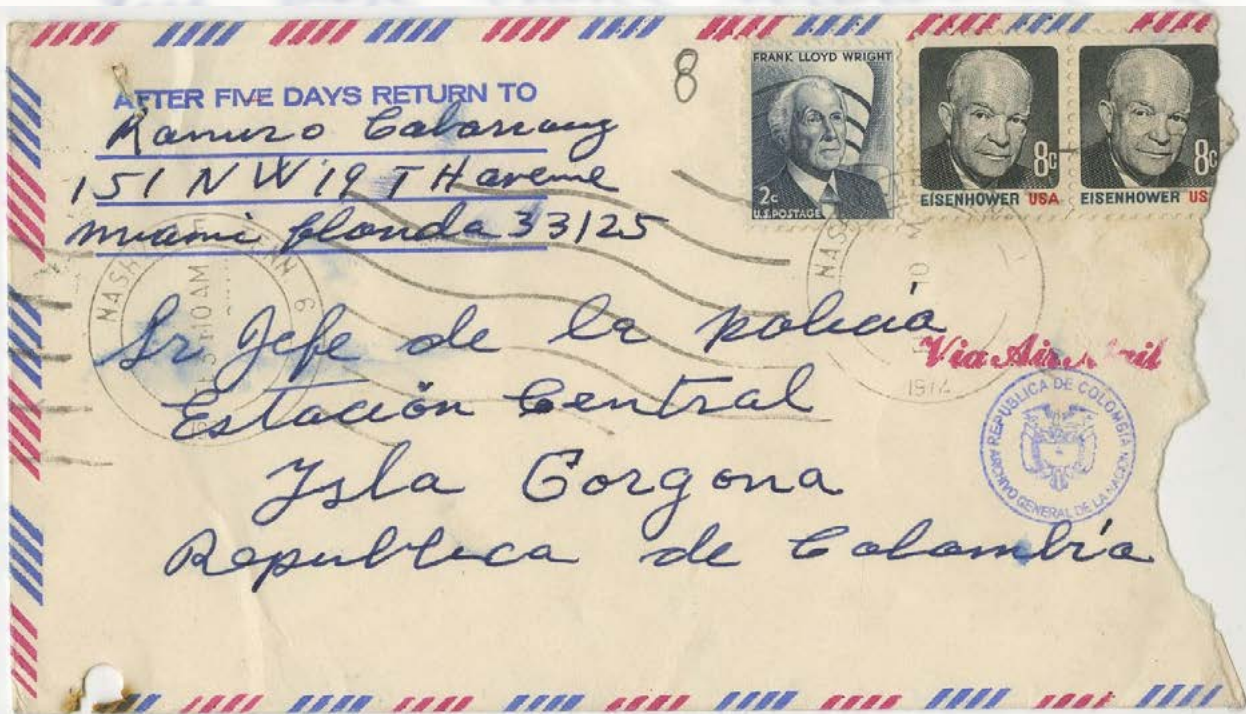 AFTER FIVE DAYS RETURN TO
Ramiro
151 NW 19 TH avenue
miami florida 33125
8
FRANK LLOYD WRIGHT
2c
U.S. POSTAGE
8c
EISENHOWER USA
8c
EISENHOWER US
NASH
10 AM
1974
Via Air Mail
Sr Jefe de la policía
Estación Central
Isla Gorgona
Republica de Colombia
REPUBLICA DE COLOMBIA
ARCHIVO GENERAL DE LA NACION